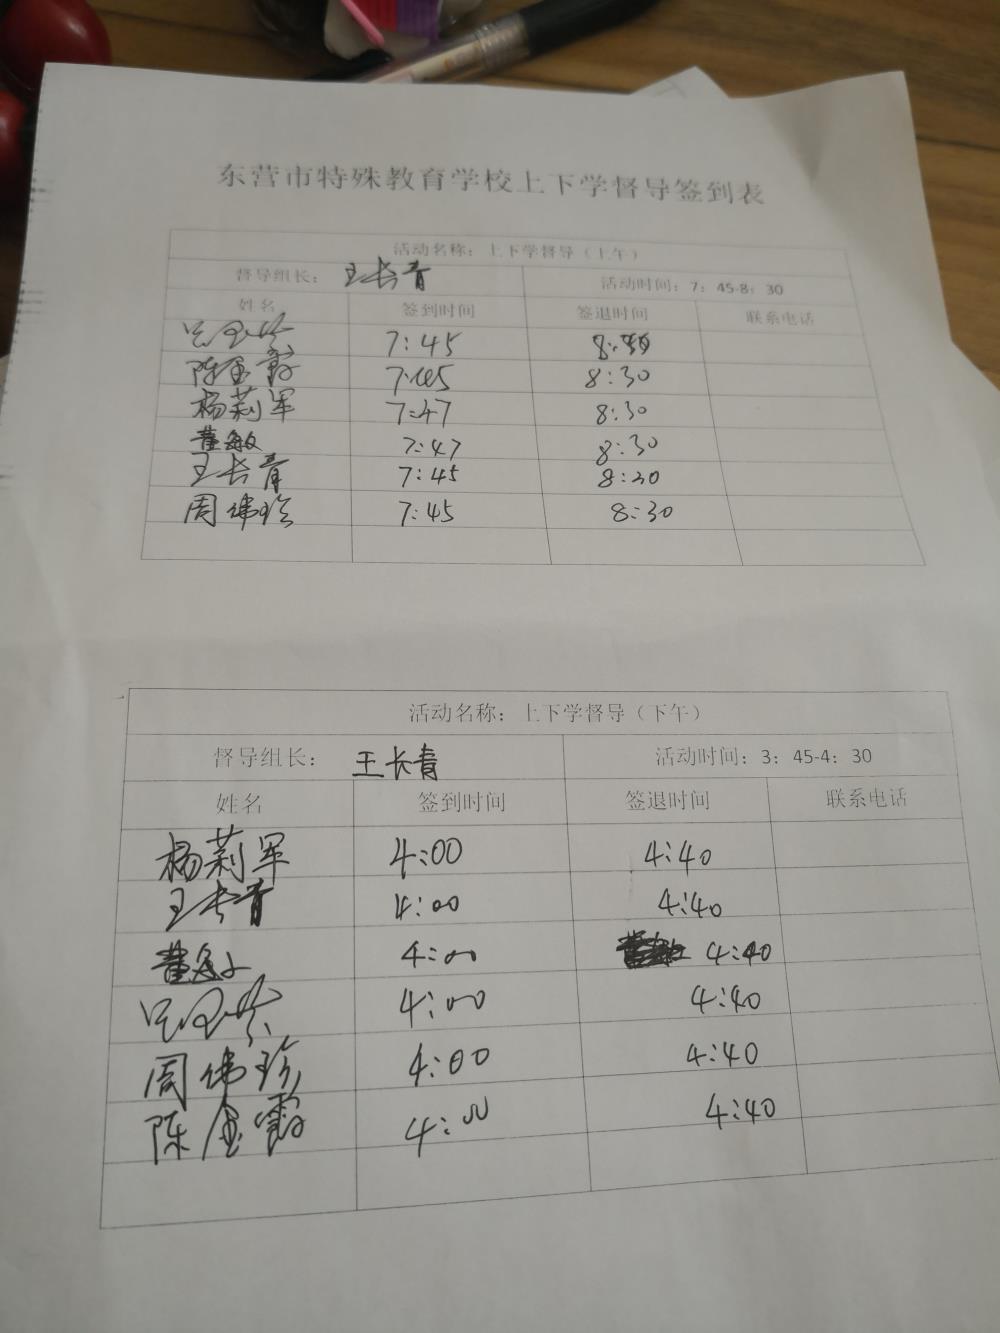 东营市特殊教育学校上下学督导签到表
活动名称：上下学督导（上午）
督导组长： 王长青 活动时间：7：45-8：30
姓名 签到时间 签退时间 联系电话
7:45
陈 霞 7:45 8:30
杨莉军 7:47 8:30
董敏 7:47 8:30
王长青 7:45 8:30
周伟珍 7:45 8:30
活动名称：上下学督导（下午）
督导组长： 王长青 活动时间：3：45-4：30
姓名 签到时间 签退时间 联系电话
杨莉军 4:00 4:40
王长青 4:00 4:40
董敏 4:00 4:40
4:00 4:40
周伟珍 4:00 4:40
陈 霞 4:00 4:40